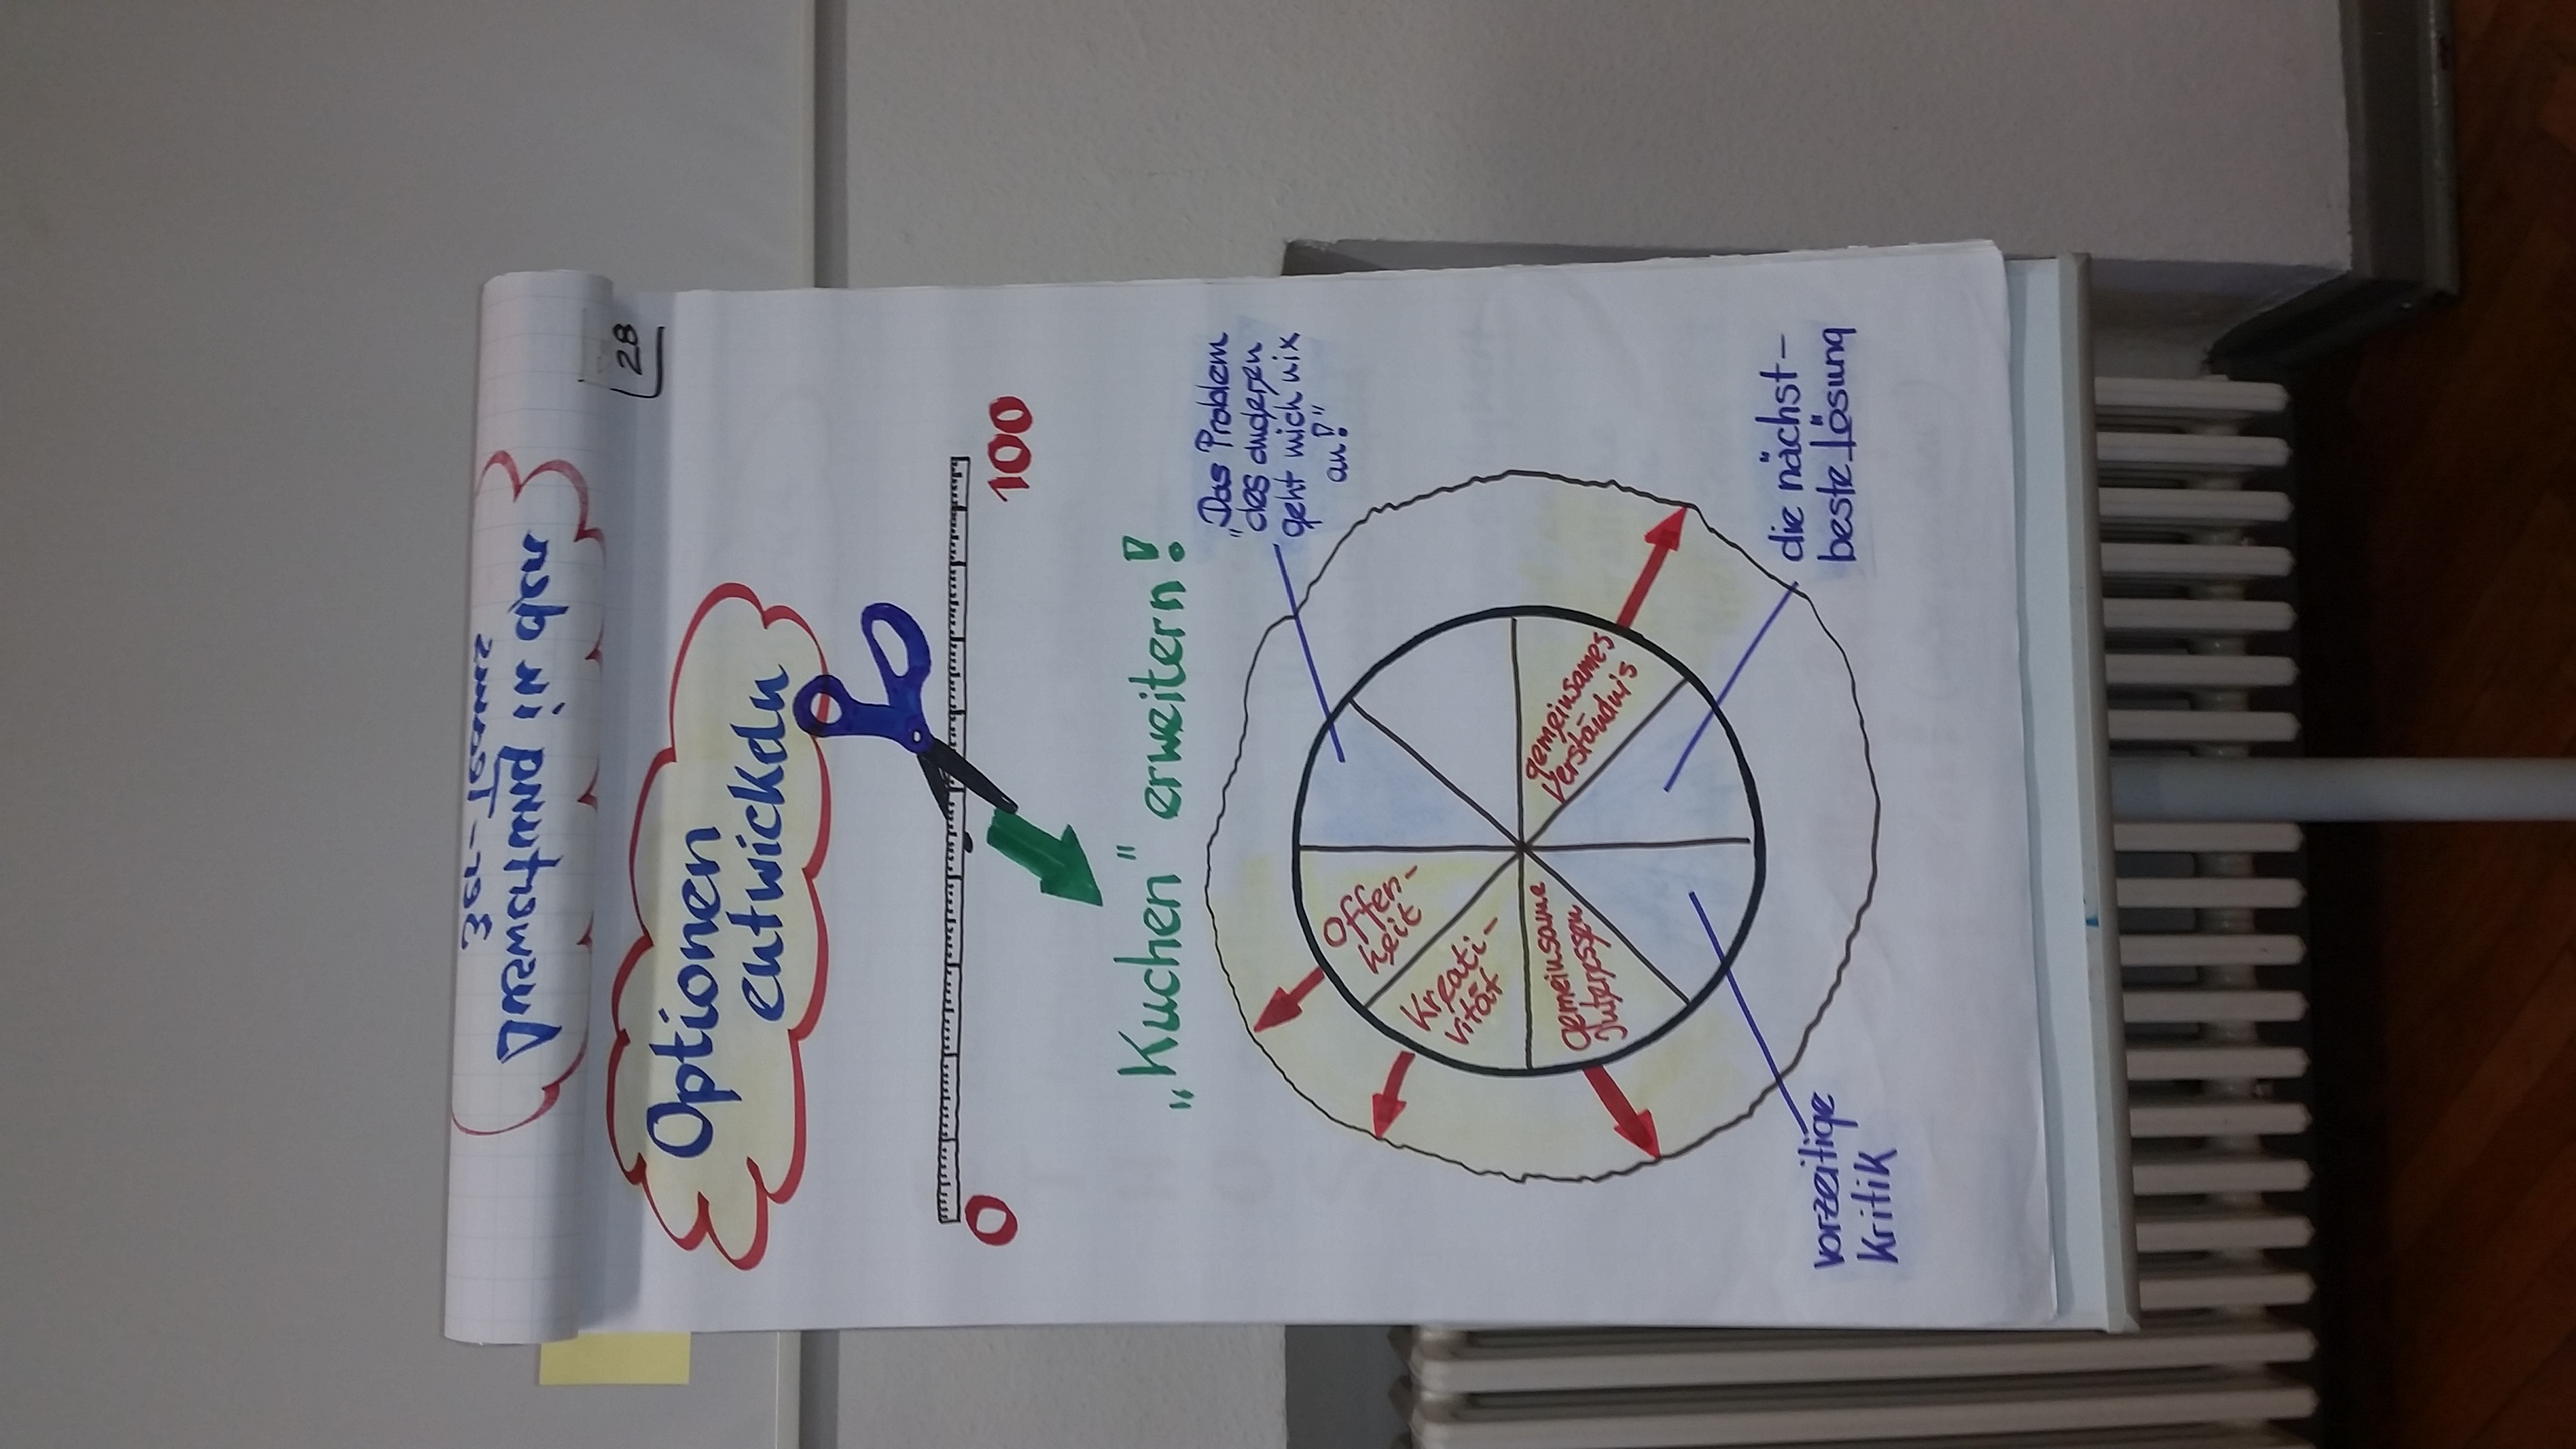 3er-Teams
Auswertung in den
28
Optionen
entwickeln
0
100
„Kuchen" erweitern!
„Das Problem
des anderen
geht mich nix
an!"
Offen-
heit
Kreati-
vität
gemeinsame
Interessen
gemeinsames
Verständnis
vorzeitige
Kritik
die nächst-
beste Lösung